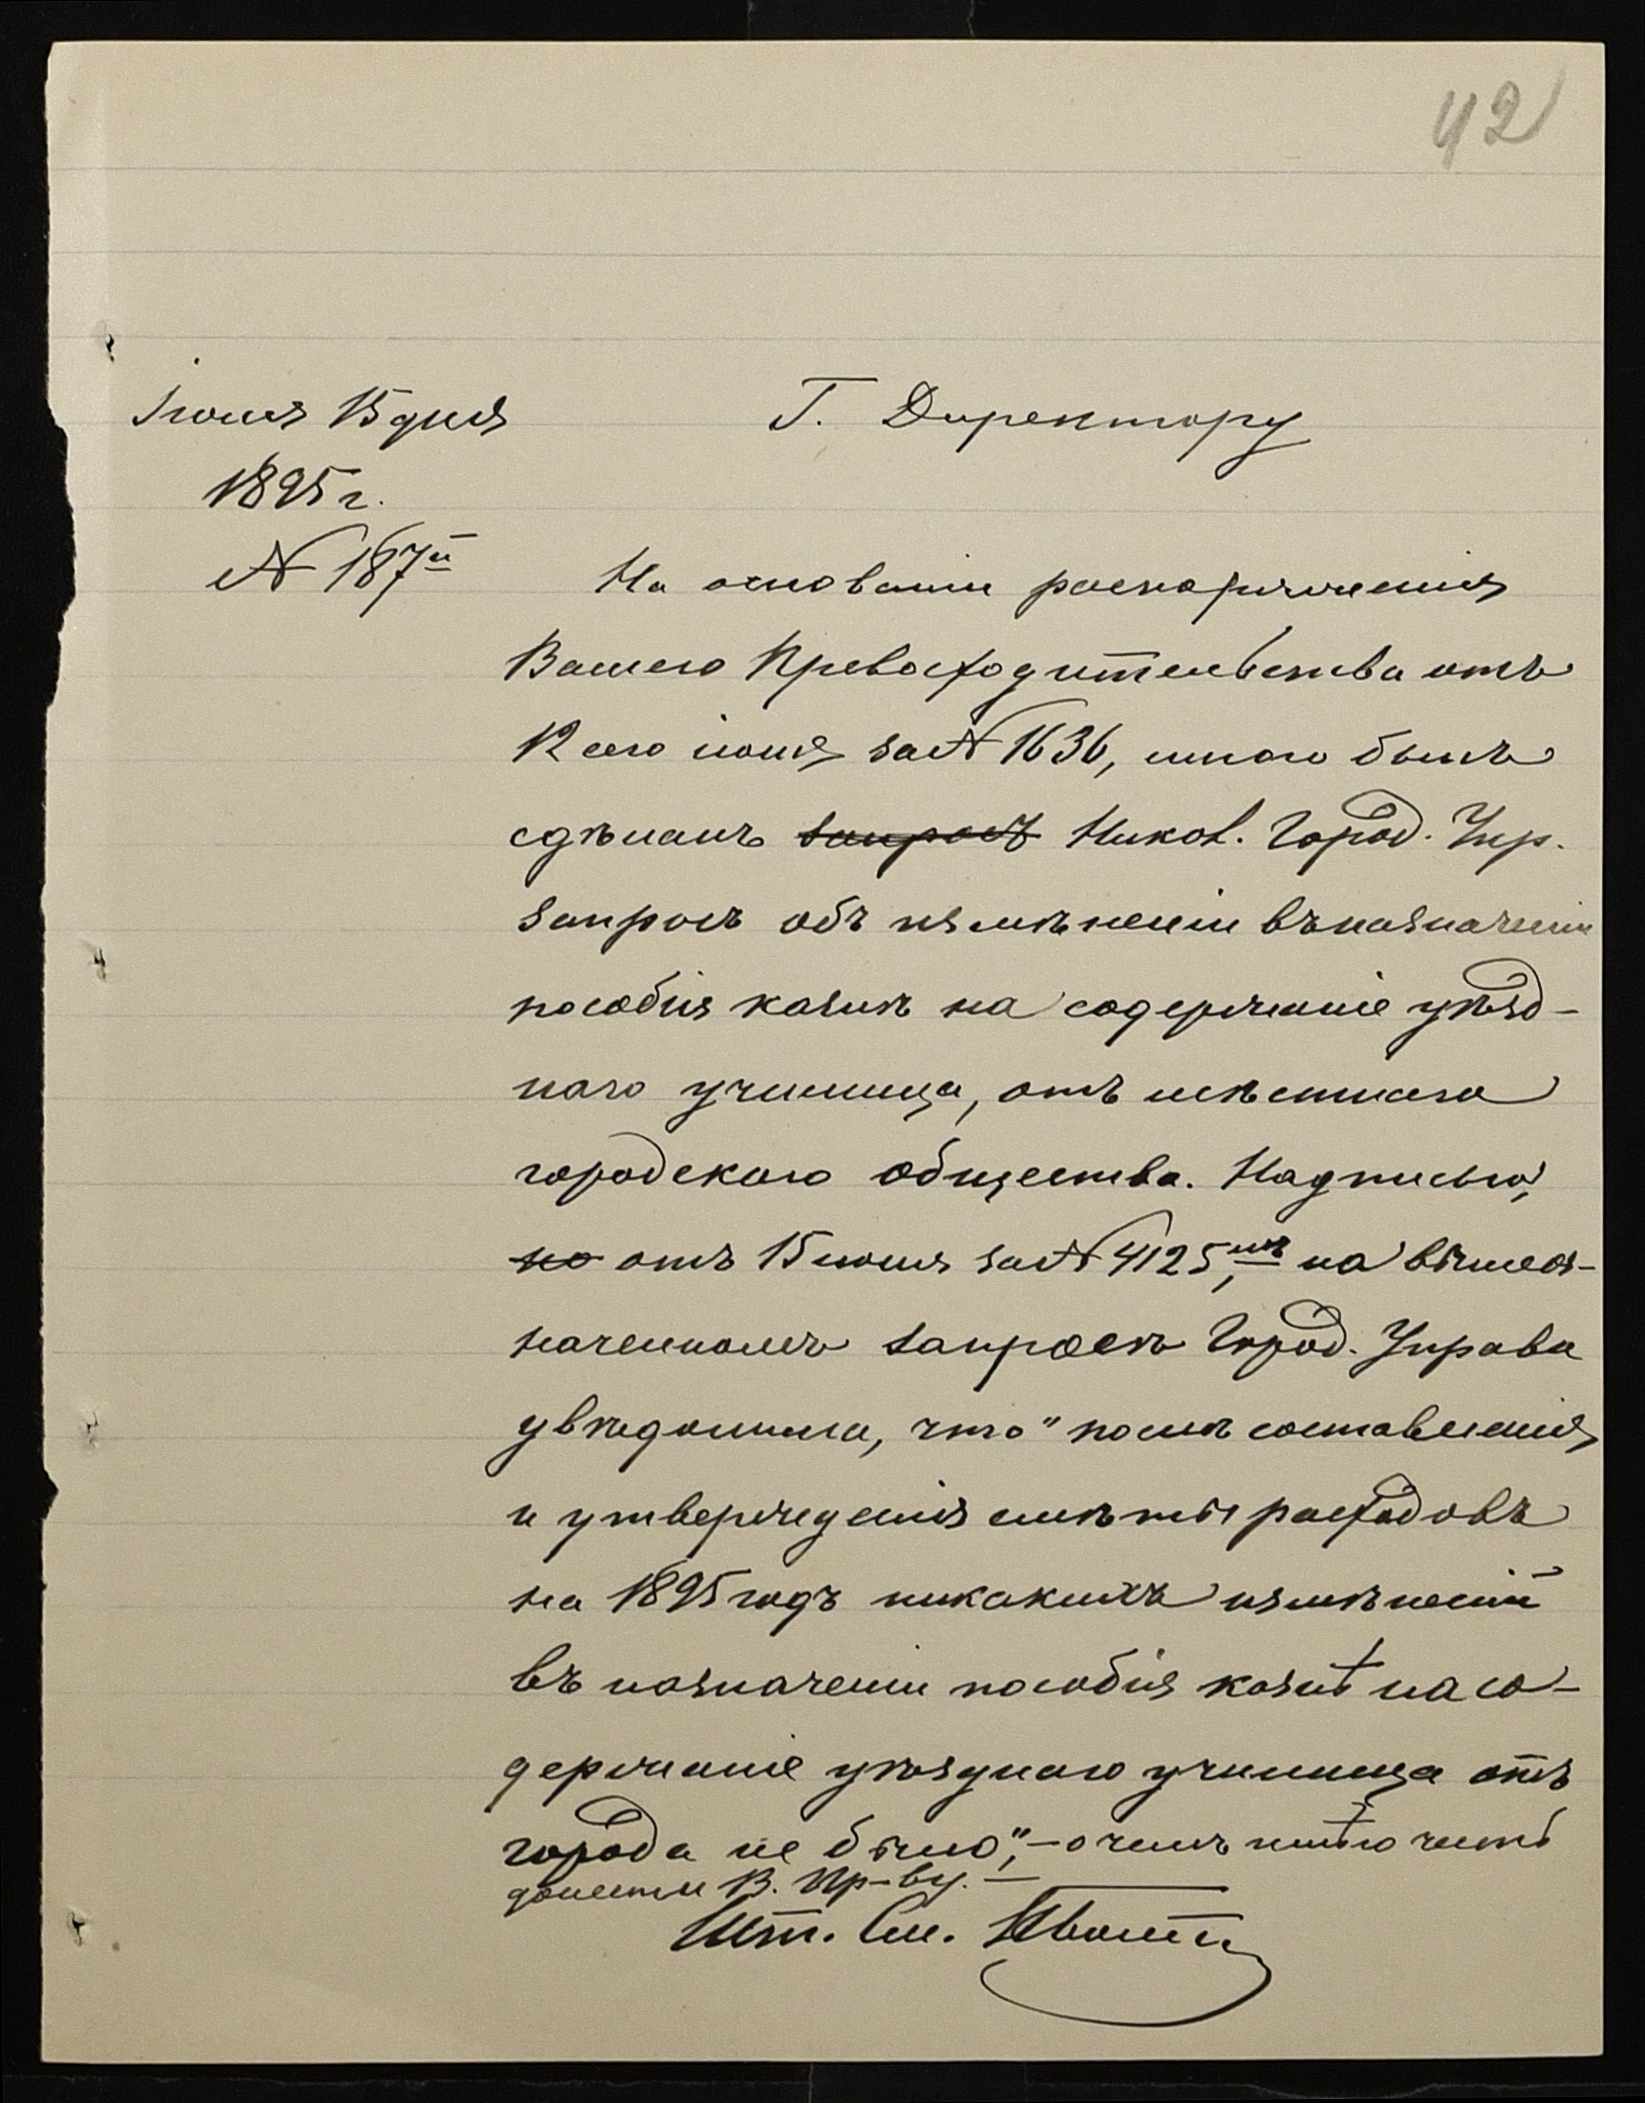 42
Іюня 15 дня
1895 г.
№ 187й
Г. Директору
На основаніи распоряженія
Вашего Превосходительства отъ
12 сего іюня за № 1636, мною былъ
сдѣланъ запросъ Никол. Город. Упр.
запросъ объ измѣненіи въ назначеніи
пособія казнѣ на содержаніе уѣзд-
наго училища, отъ мѣстнаго
городского общества. Надписью,
но отъ 15 іюня за № 4125, на вышеоз-
наченномъ запросѣ Город. Управа
увѣдомила, что "послѣ составленія
и утвержденія смѣты расходовъ
на 1895 годъ никакихъ измѣненій
въ назначеніи пособія казнѣ на со-
держаніе уѣзднаго училища отъ
города не было", – о чемъ имѣю честь
донести В. Пр-ву. –
Шт. См.